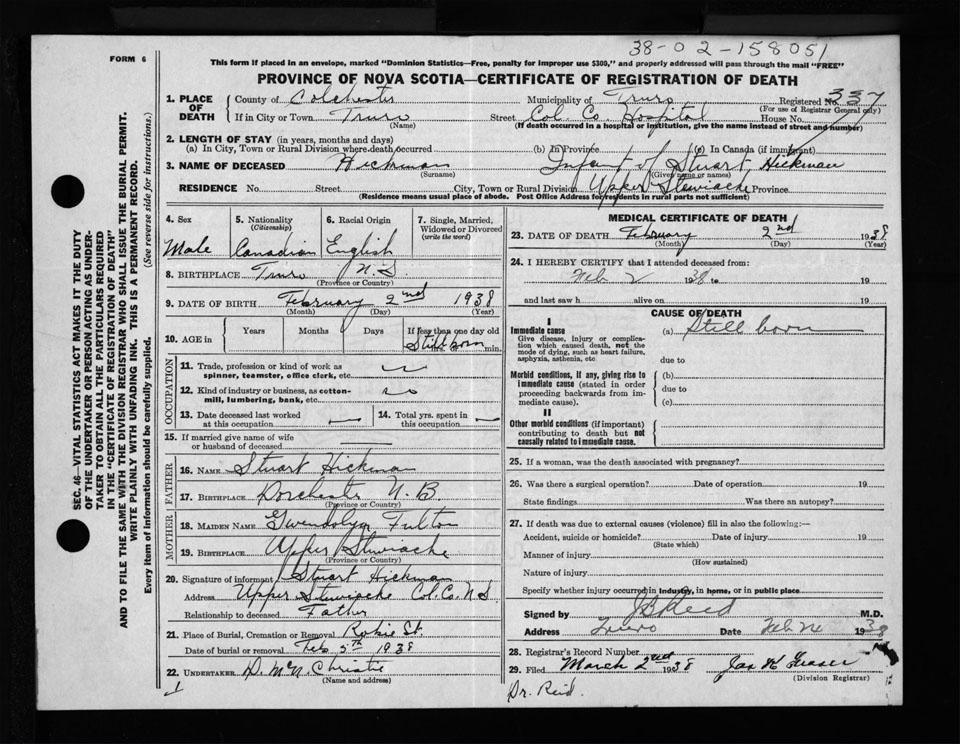 38-02-158051
FORM 6
This form if placed in an envelope, marked "Dominion Statistics—Free, penalty for improper use $300," and properly addressed will pass through the mail "FREE"
PROVINCE OF NOVA SCOTIA—CERTIFICATE OF REGISTRATION OF DEATH
1. PLACE OF DEATH { County of Colchester Municipality of Truro Registered No. 337
(For use of Registrar General only)
If in City or Town Truro Street Col. Co. Hospital House No.
(Name) (If death occurred in a hospital or institution, give the name instead of street and number)
2. LENGTH OF STAY (in years, months and days)
(a) In City, Town or Rural Division where death occurred (b) In Province (c) In Canada (if immigrant)
3. NAME OF DECEASED Hickman Infant of Stuart Hickman
(Surname) (Given name or names)
RESIDENCE No. Street City, Town or Rural Division Upper Stewiacke Province
(Residence means usual place of abode. Post Office Address for residents in rural parts not sufficient)
4. Sex 5. Nationality (Citizenship) 6. Racial Origin 7. Single, Married, Widowed or Divorced (write the word)
Male Canadian English
8. BIRTHPLACE Truro N.S.
(Province or Country)
9. DATE OF BIRTH February 2nd 1938
(Month) (Day) (Year)
10. AGE in { Years Months Days If less than one day old
Stillborn min.
OCCUPATION
11. Trade, profession or kind of work as spinner, teamster, office clerk, etc.
12. Kind of industry or business, as cotton-mill, lumbering, bank, etc.
13. Date deceased last worked at this occupation
14. Total yrs. spent in this occupation
15. If married give name of wife or husband of deceased
FATHER
16. NAME Stuart Hickman
17. BIRTHPLACE Dorchester N.B.
(Province or Country)
MOTHER
18. MAIDEN NAME Gwendolyn Fulton
19. BIRTHPLACE Upper Stewiacke
(Province or Country)
20. Signature of informant Stuart Hickman
Address Upper Stewiacke Col. Co. N.S.
Relationship to deceased Father
21. Place of Burial, Cremation or Removal Robie St.
Date of burial or removal Feb 5th 1938
22. UNDERTAKER D. McN. Christie
(Name and address)
MEDICAL CERTIFICATE OF DEATH
23. DATE OF DEATH February 2nd 1938
(Month) (Day) (Year)
24. I HEREBY CERTIFY that I attended deceased from:
Feb 2 1938 to 19
and last saw h alive on 19
CAUSE OF DEATH
I
Immediate cause (a) Still born
Give disease, injury or complication which caused death, not the mode of dying, such as heart failure, asphyxia, asthenia, etc
due to
Morbid conditions, if any, giving rise to immediate cause (stated in order proceeding backwards from immediate cause).
(b)
due to
(c)
II
Other morbid conditions (if important) contributing to death but not causally related to immediate cause.
25. If a woman, was the death associated with pregnancy?
26. Was there a surgical operation? Date of operation 19
State findings Was there an autopsy?
27. If death was due to external causes (violence) fill in also the following:—
Accident, suicide or homicide? Date of injury 19
(State which)
Manner of injury
(How sustained)
Nature of injury
Specify whether injury occurred in industry, in home, or in public place
Signed by J B Reid M.D.
Address Truro Date Feb 1938
28. Registrar's Record Number
29. Filed March 2nd 1938 Jas K Fraser
(Division Registrar)
Dr. Reid.
SEC. 46—VITAL STATISTICS ACT MAKES IT THE DUTY
OF THE UNDERTAKER OR PERSON ACTING AS UNDER-
TAKER TO OBTAIN ALL THE PARTICULARS REQUIRED
IN THE "CERTIFICATE OF REGISTRATION OF DEATH"
AND TO FILE THE SAME WITH THE DIVISION REGISTRAR WHO SHALL ISSUE THE BURIAL PERMIT.
WRITE PLAINLY WITH UNFADING INK. THIS IS A PERMANENT RECORD.
Every item of information should be carefully supplied. (See reverse side for instructions.)